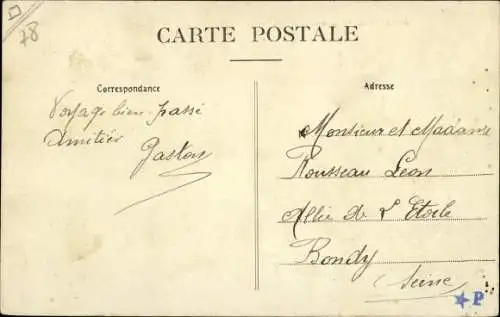 78
CARTE POSTALE
Correspondance
Adresse
Voyage bien passé
Amitiés
Gaston
Monsieur et Madame
Rousseau Leon
Allée de L'Etoile
Bondy
Seine
P